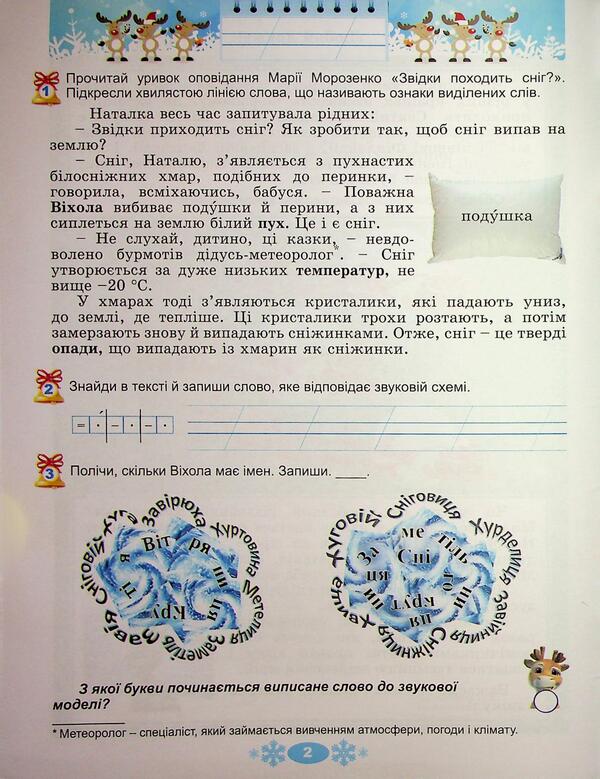 1 Прочитай уривок оповідання Марії Морозенко «Звідки походить сніг?».
Підкресли хвилястою лінією слова, що називають ознаки виділених слів.
Наталка весь час запитувала рідних:
– Звідки приходить сніг? Як зробити так, щоб сніг випав на
землю?
– Сніг, Наталю, з’являється з пухнастих
білосніжних хмар, подібних до перинки, –
говорила, всміхаючись, бабуся. – Поважна
Віхола вибиває поду́шки й перини, а з них
сиплеться на землю білий пух. Це і є сніг.
– Не слухай, дитино, ці казки, – невдо-
волено бурмотів дідусь-метеоролог*. – Сніг
утворюється за дуже низьких температур, не
вище –20 °С.
поду́шка
У хмарах тоді з’являються кристалики, які падають униз,
до землі, де тепліше. Ці кристалики трохи розтають, а потім
замерзають знову й випадають сніжинками. Отже, сніг – це тверді
опади, що випадають із хмарин як сніжинки.
2 Знайди в тексті й запиши слово, яке відповідає звуковій схемі.
3 Полічи, скільки Віхола має імен. Запиши. ____.
Завірюха
Хуртовина
Метелиця
Заметіль
Завія
Сніговій
Хуга
Віт
ря
ни
ця
Кру
ті
я
Хуговій
Сніговиця
Хурделиця
Завійниця
Сніжниця
Хвища
За
ме
тіль
Сні
го
ви
ця
Крут
З якої букви починається виписане слово до звукової
моделі?
* Метеоролог – спеціаліст, який займається вивченням атмосфери, погоди і клімату.
2